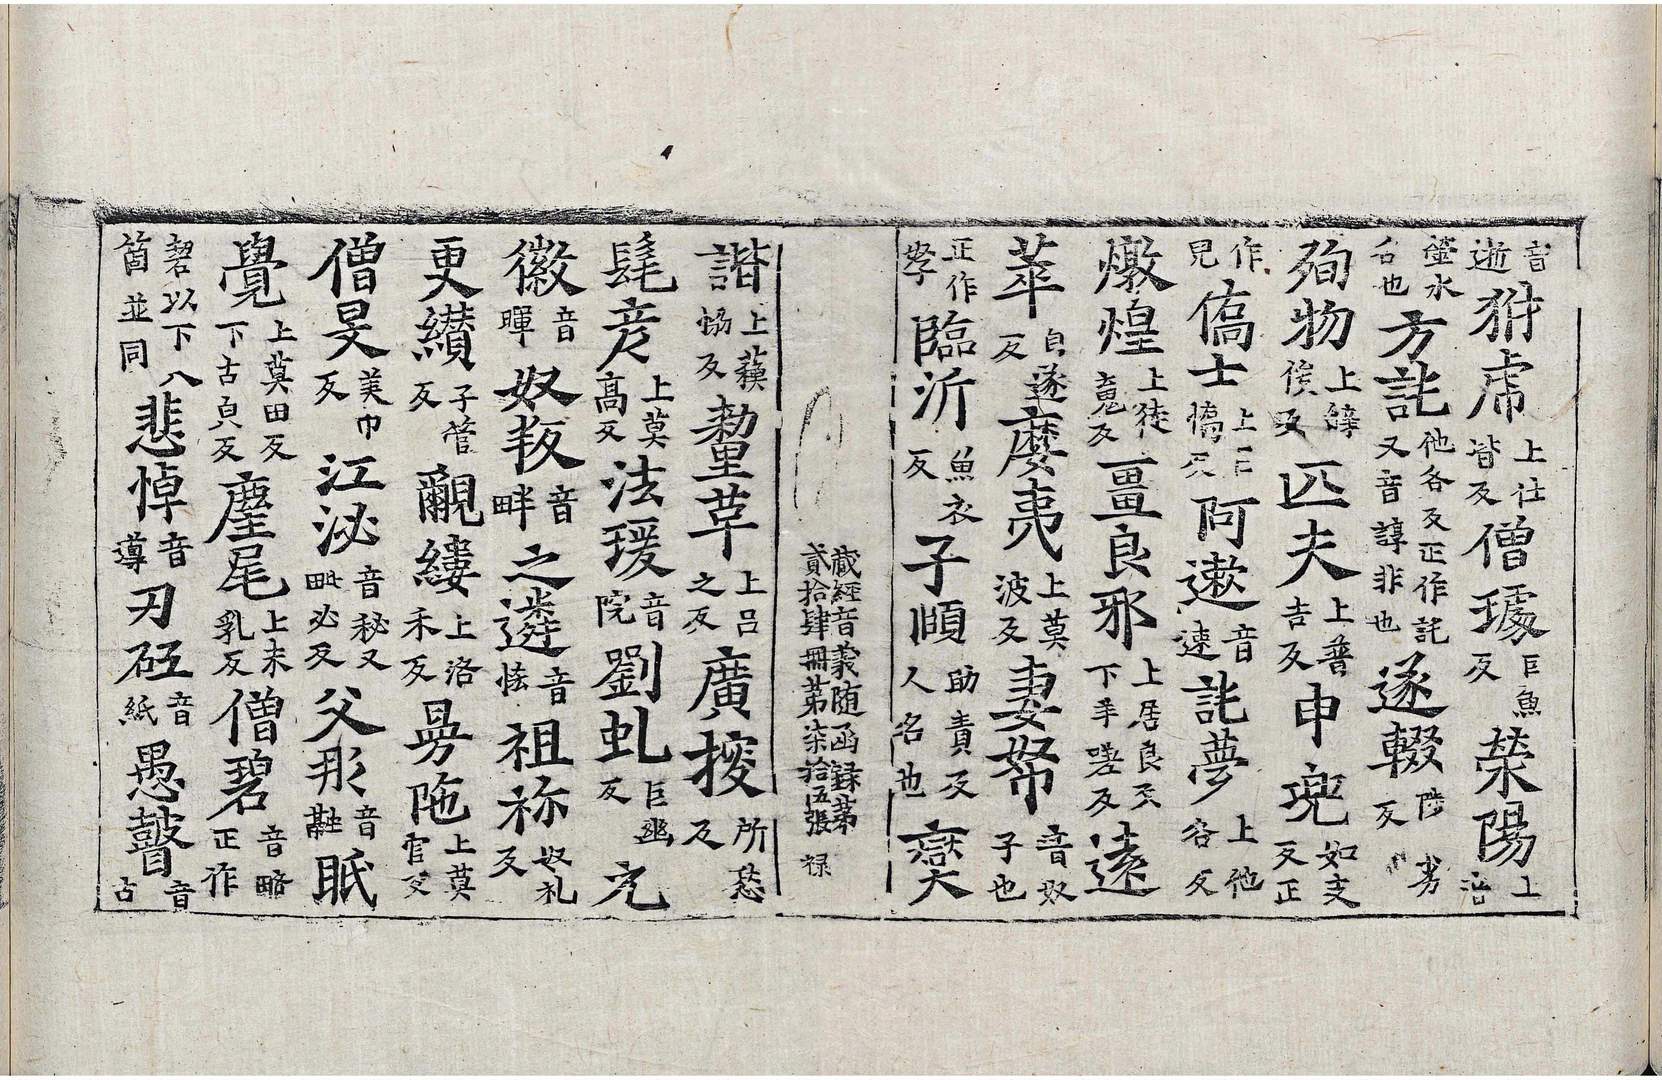 音逝猘虎上仕皆反僧璩巨魚反榮陽上音
螢水名也方託他各反正作託又音諄非也遂輟陟劣反
殉物上辝俊反匹夫上普吉反申兜如支反正
作皃僑士上巨憍反阿遬音速託夢上他各反
燉煌上徒䰟反畺良邪上居良反下羊嗟反遠
萃自遂反麼夷上莫波反妻帑音奴子也
正作孥臨沂魚衣反子頤助責反人名也奱
藏經音義随函録第
貳拾肆冊第柒拾五張 禄
諧上蘓協反蔾草上呂之反廣㮴所愁反
髦彦上莫高反法瑗音院劉虬巨幽反㝎
徽音暉奴叛音畔之遴音恡祖祢奴礼反
更纘子管反覼縷上洛禾反㫯陁上莫官反
僧旻美巾反江泌音秘又毗必反父肜音融眂
覺上莫田反下古皃反麈尾上朱乳反僧碧音略正作
䂮以下八箇並同悲悼音導刃砥音紙愚瞽音古